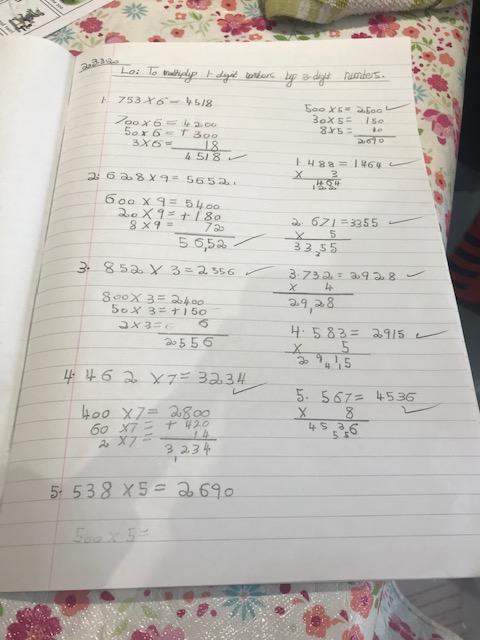 20.3.20
Lo: To multiply 1-digit numbers by 3-digit numbers.
1. 753 X 6 = 4518
700 X 6 = 4200
50 X 6 = + 300
3 X 6 = 18
4518 ✓
2. 628 X 9 = 5652.
600 X 9 = 5400
20 X 9 = + 180
8 X 9 = 72
5652 ✓
3. 852 X 3 = 2556 ✓
800 X 3 = 2400
50 X 3 = + 150
2 X 3 = 6
2556
4. 462 X 7 = 3234 ✓
400 X 7 = 2800
60 X 7 = + 420
2 X 7 = 14
3,234
5. 538 X 5 = 2690
500 X 5 =
500 X 5 = 2500 ✓
30 X 5 = 150
8 X 5 = 40
2690
1. 488 = 1464 ✓
X 3
2. 671 = 3355 ✓
X 5
33,55
3. 732 = 2928 ✓
X 4
29,28
4. 583 = 2915 ✓
X 5
2915
41
5. 567 = 4536 ✓
X 8
4536
55